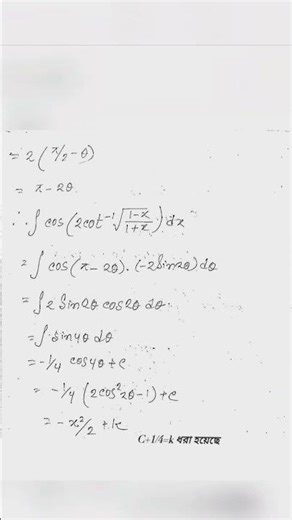 = 2 (π/2 - θ)
= π - 2θ
∴ ∫ cos (2cot⁻¹ √((1-x)/(1+x))) dx
= ∫ cos (π - 2θ) · (-2Sin2θ) dθ
= ∫ 2 Sin2θ cos2θ dθ
= ∫ Sin4θ dθ
= -1/4 cos4θ + c
= -1/4 (2cos²2θ - 1) + c
= - x²/2 + k
C+1/4=k ধরা হয়েছে